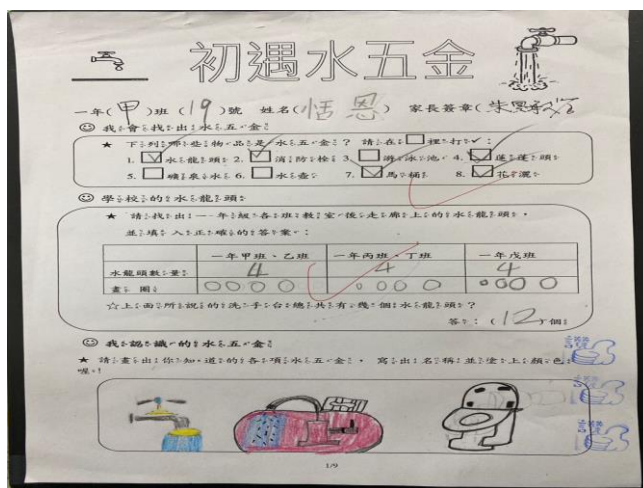 初遇水五金
一年(甲)班 (19)號 姓名(恬恩) 家長簽章(
☺ 我會找出水五金
★ 下列哪些物品是水五金? 請在□裡打✓:
1. ☑水龍頭 2. ☑消防栓 3. □游泳池 4. ☑蓮蓬頭
5. □礦泉水 6. □水壺 7. ☑馬桶 8. ☑花灑
☺ 學校的水龍頭
★ 請找出一年級各班教室後走廊上的水龍頭,
並填入正確的答案:
一年甲班、乙班 一年丙班、丁班 一年戊班
水龍頭數量 4 4 4
畫圖 ○○○○ ○○○○ ○○○○
☆上面所說的洗手台總共有幾個水龍頭?
答:(12)個
☺ 我認識的水五金
★ 請畫出你知道的各項水五金,寫出名稱並塗上顏色
喔!
1/9